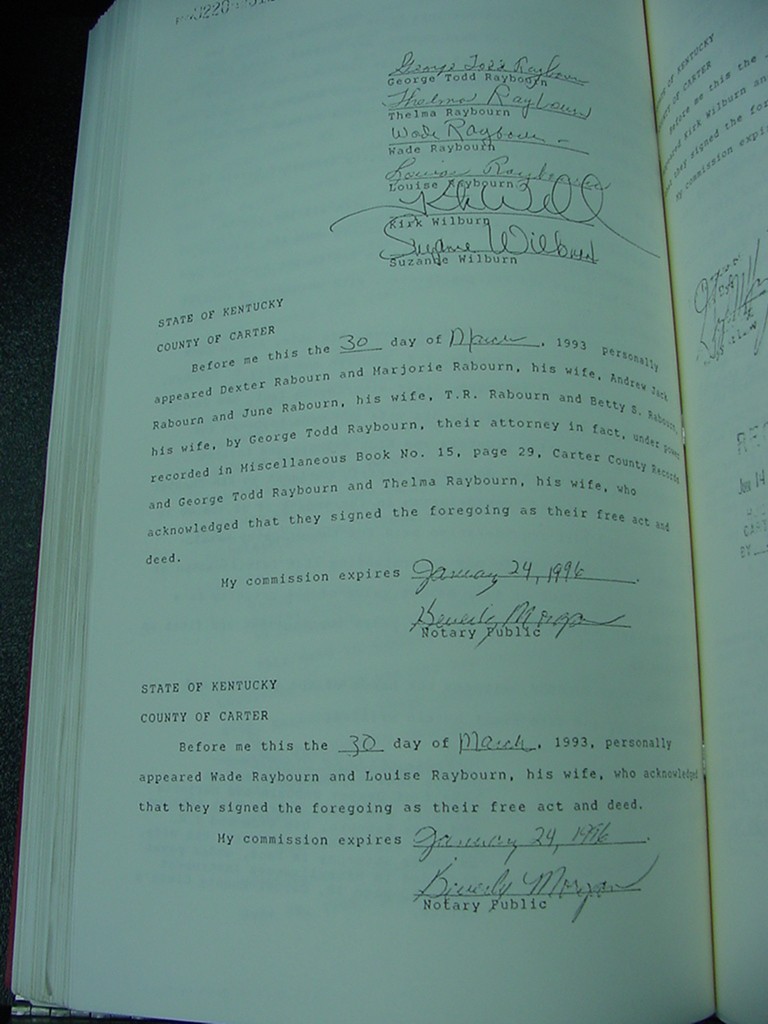 George Todd Raybourn
George Todd Raybourn
Thelma Raybourn
Thelma Raybourn
Wade Raybourn
Wade Raybourn
Louise Raybourn
Louise Raybourn
Kirk Wilburn
Suzanne Wilburn
Suzanne Wilburn
STATE OF KENTUCKY
COUNTY OF CARTER
Before me this the 30 day of March, 1993 personally
appeared Dexter Rabourn and Marjorie Rabourn, his wife, Andrew Jack
Rabourn and June Rabourn, his wife, T.R. Rabourn and Betty S. Rabourn,
his wife, by George Todd Raybourn, their attorney in fact, under power
recorded in Miscellaneous Book No. 15, page 29, Carter County Records
and George Todd Raybourn and Thelma Raybourn, his wife, who
acknowledged that they signed the foregoing as their free act and
deed.
My commission expires January 24, 1996.
Beverly Morgan
Notary Public
STATE OF KENTUCKY
COUNTY OF CARTER
Before me this the 30 day of March, 1993, personally
appeared Wade Raybourn and Louise Raybourn, his wife, who acknowledged
that they signed the foregoing as their free act and deed.
My commission expires January 24, 1996.
Beverly Morgan
Notary Public
OF KENTUCKY
OF CARTER
Before me this the
Kirk Wilburn an
they signed the for
My commission expi